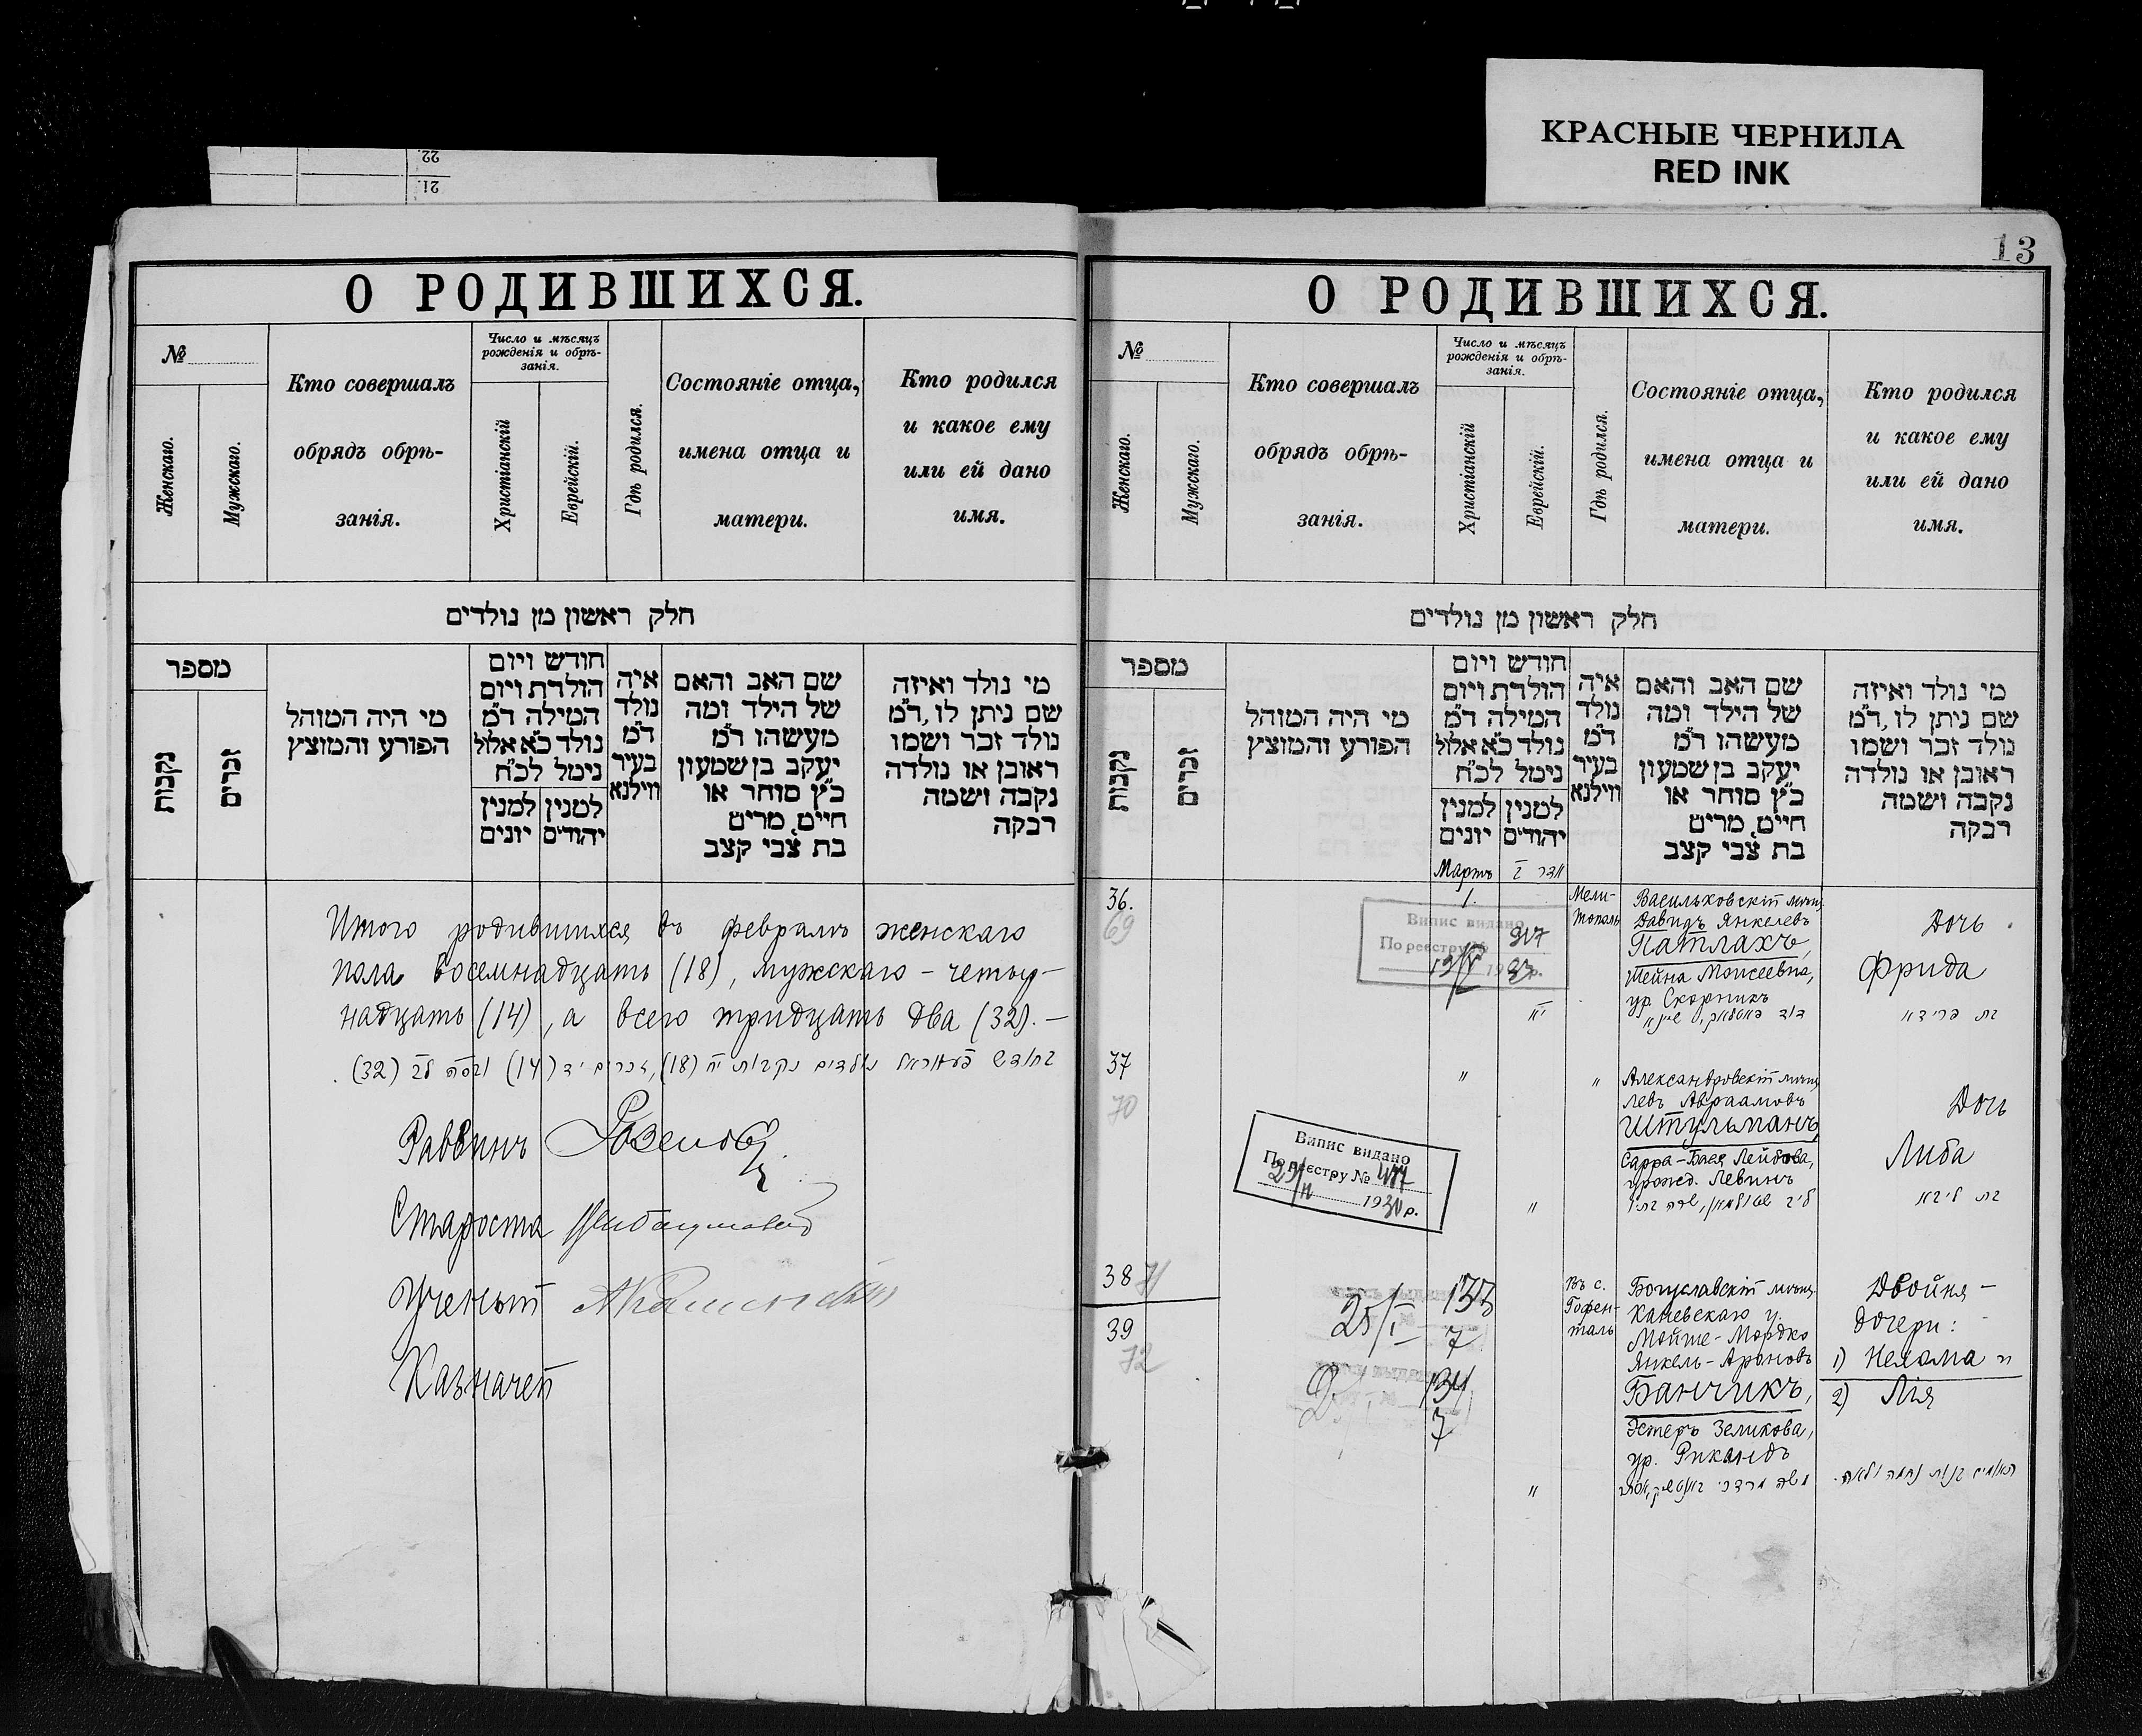 КРАСНЫЕ ЧЕРНИЛА
RED INK
22.
21.
О РОДИВШИХСЯ.
№
Женскаго.
Мужскаго.
Кто совершалъ
обрядъ обрѣ-
занія.
Число и мѣсяцъ
рожденія и обрѣ-
занія.
Христіанскій
Еврейскій.
Гдѣ родился.
Состояніе отца,
имена отца и
матери.
Кто родился
и какое ему
или ей дано
имя.
חלק ראשון מן נולדים
מספר
נקבות
זכרים
מי היה המוהל
הפורע והמוצץ
חודש ויום
הולדת ויום
המילה ד״מ
נולד כ״א אלול
נימל לכ״ח
למנין יהודים
למנין יונים
איה
נולד
ד״מ
בעיר
ווילנא
שם האב והאם
של הילד ומה
מעשהו ד״מ
יעקב בן שמעון
כ״ץ סוחר או
חייט, מרים
בת צבי קצב
מי נולד ואיזה
שם ניתן לו, ד״מ
נולד זכר ושמו
ראובן או נולדה
נקבה ושמה
רבקה
Итого родившихся въ февралѣ женскаго
пола восемнадцать (18), мужскаго - четыр-
надцать (14), а всего тридцать два (32). —
בחודש פעברואר נולדים נקבות י״ח (18), זכרים י״ד (14) ובסה ל״ב (32).
Раввинъ
Староста
Ученый
Казначей
13
О РОДИВШИХСЯ.
№
Женскаго.
Мужскаго.
Кто совершалъ
обрядъ обрѣ-
занія.
Число и мѣсяцъ
рожденія и обрѣ-
занія.
Христіанскій
Еврейскій.
Гдѣ родился.
Состояніе отца,
имена отца и
матери.
Кто родился
и какое ему
или ей дано
имя.
חלק ראשון מן נולדים
מספר
נקבות
זכרים
מי היה המוהל
הפורע והמוצץ
חודש ויום
הולדת ויום
המילה ד״מ
נולד כ״א אלול
נימל לכ״ח
למנין יהודים
למנין יונים
איה
נולד
ד״מ
בעיר
ווילנא
שם האב והאם
של הילד ומה
מעשהו ד״מ
יעקב בן שמעון
כ״ץ סוחר או
חייט, מרים
בת צבי קצב
מי נולד ואיזה
שם ניתן לו, ד״מ
נולד זכר ושמו
ראובן או נולדה
נקבה ושמה
רבקה
Мартъ
אדר
36.
69
1.
Випис видано
По реестру №
317
Мели-
тополь
Васильковскій мѣщ.
Давидъ Янкелевъ
Патлахъ,
Шейна Моисеевна,
ур. Скорникъ
Дочь
Фрида
בת פרידא
37
70
"
"
Випис видано
По реестру № 477
1930 р.
"
Александровскій мѣщ.
Левъ Авраамовъ
Штульманъ,
Сарра-Бася Лейбова,
урожд. Левинъ
Дочь
Либа
בת ליבא
38 71
39
72
25/I
133
7
134
7
Въ с.
Гофен-
таль
"
Богуславскій мѣщ.
Каневскаго у.
Мойше-Мордко
Янкель-Ароновъ
Банчикъ,
Эстеръ Зеликова,
ур. Рикандъ
Двойня —
дочери:
1) Нехама и
2) Лія